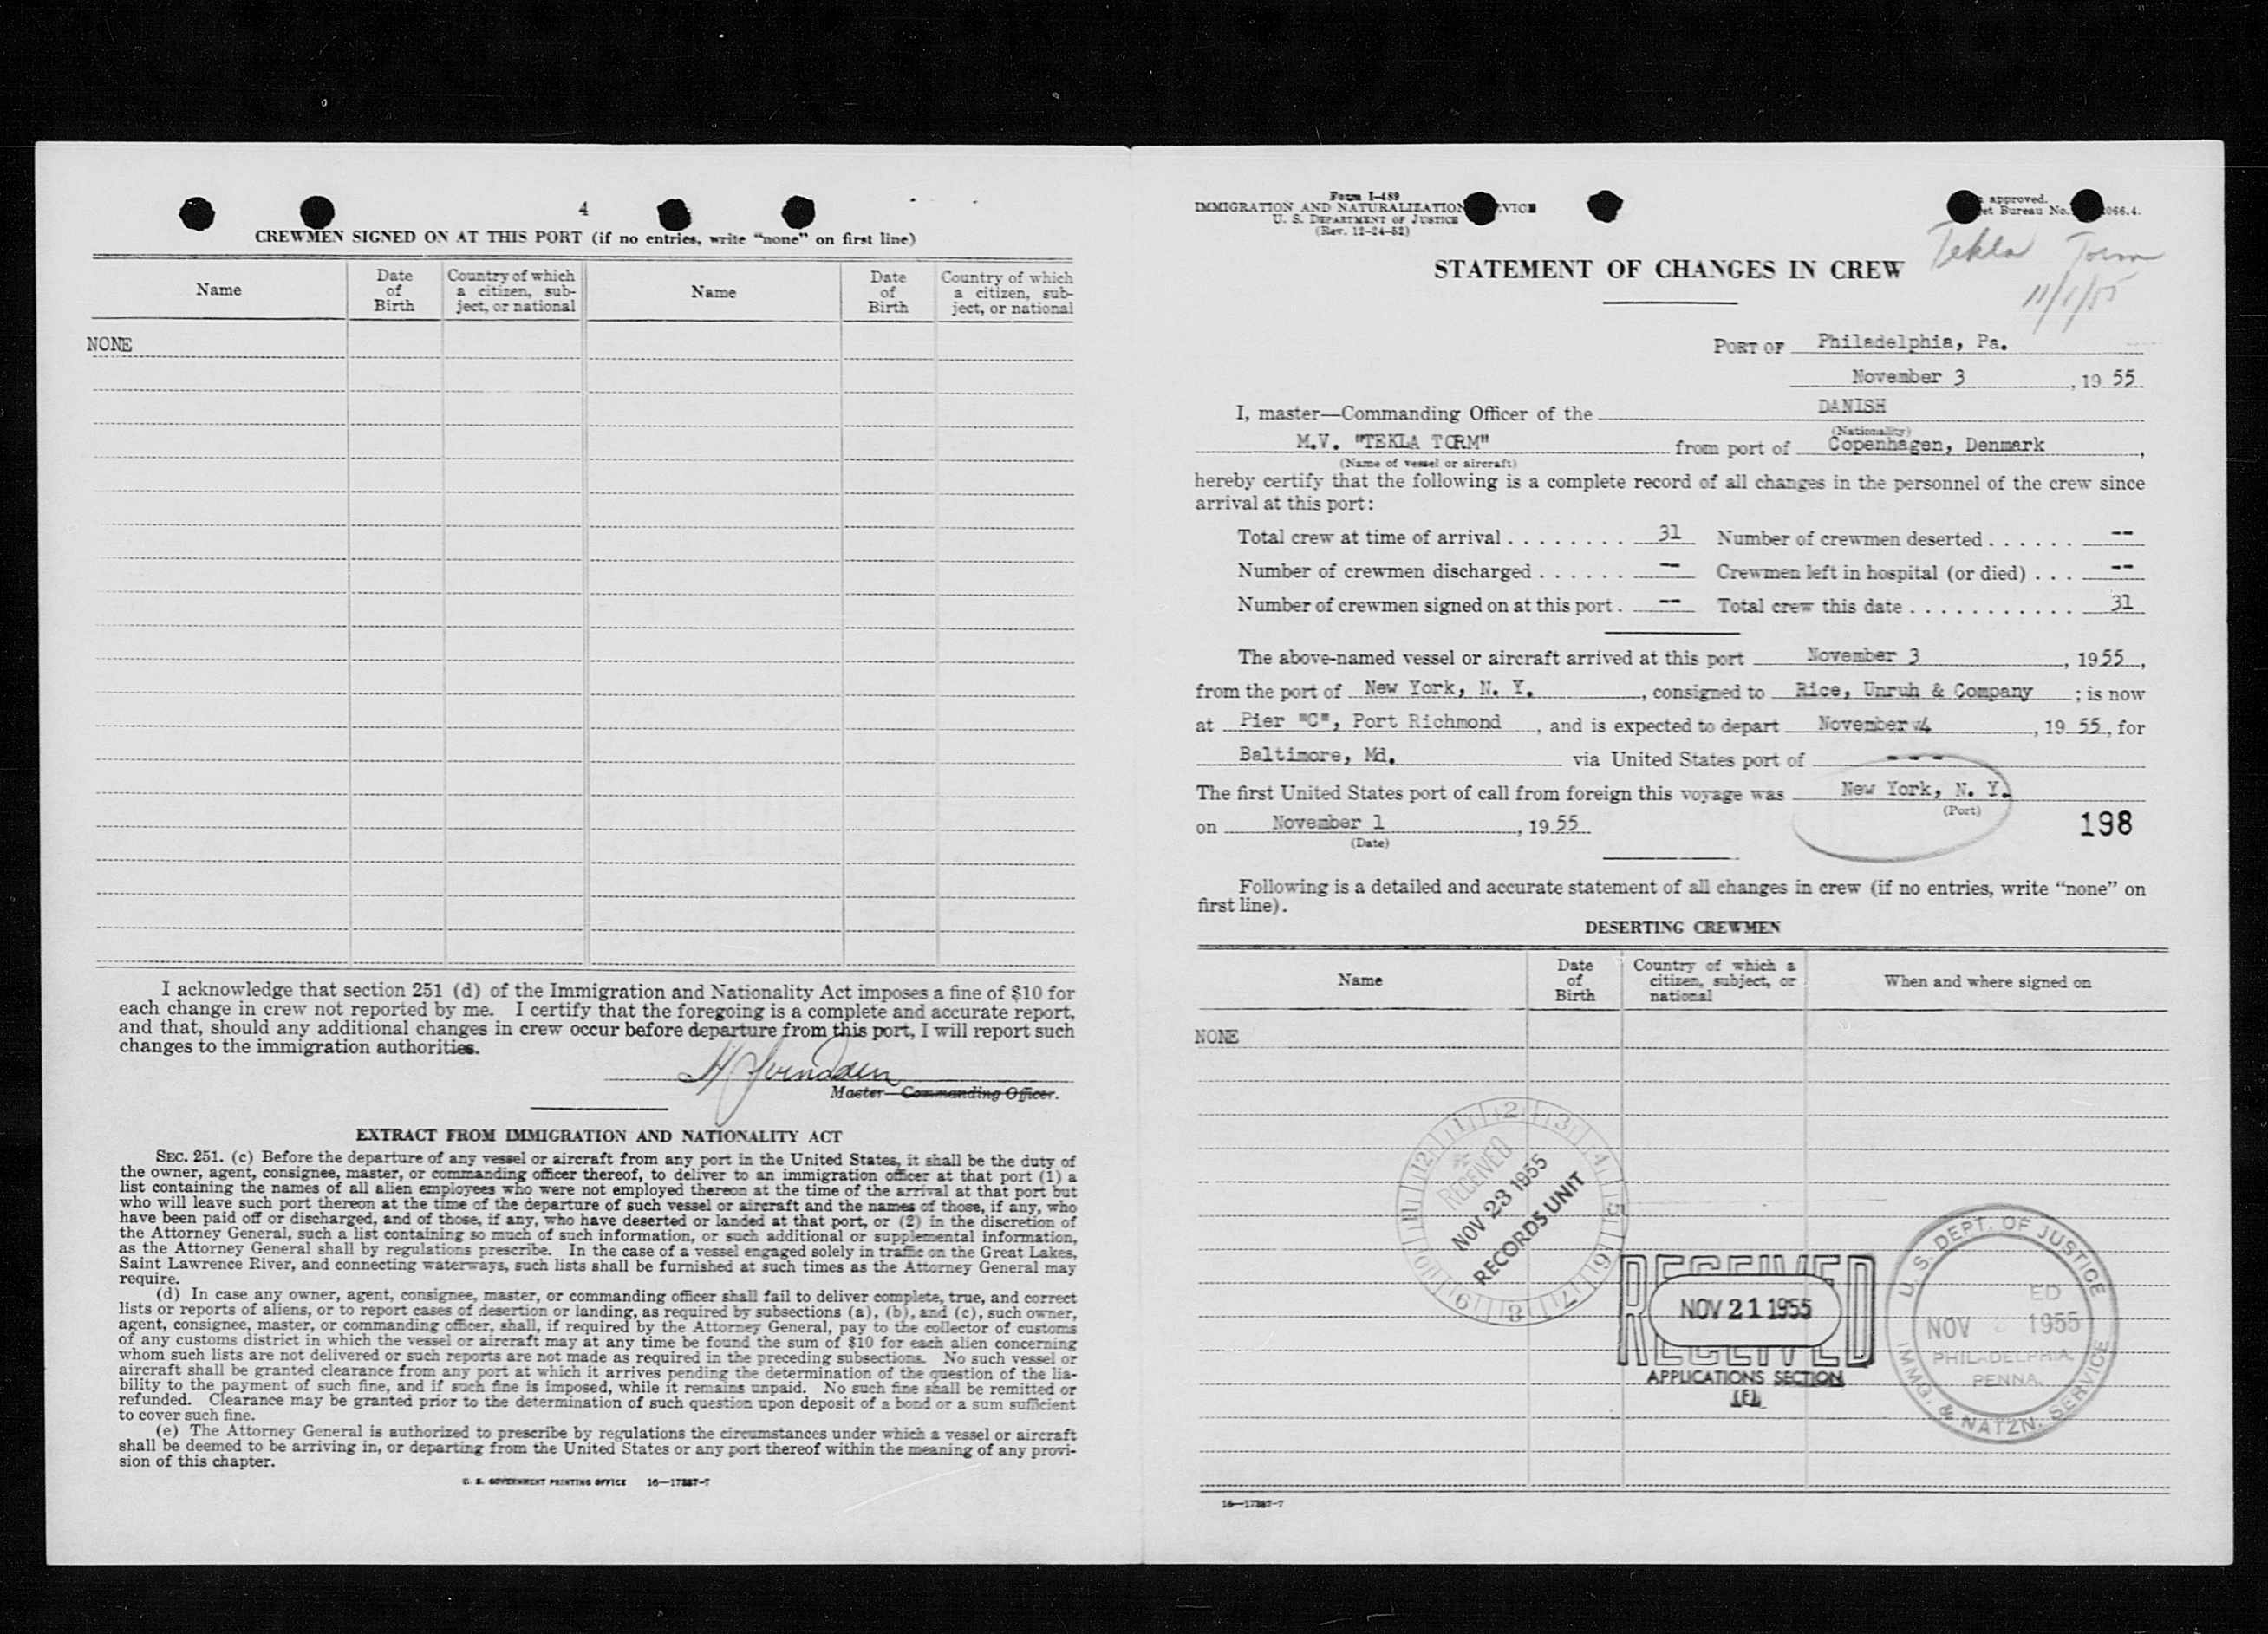 4
CREWMEN SIGNED ON AT THIS PORT (if no entries, write "none" on first line)
Name
Date of Birth
Country of which a citizen, subject, or national
Name
Date of Birth
Country of which a citizen, subject, or national
NONE
I acknowledge that section 251 (d) of the Immigration and Nationality Act imposes a fine of $10 for
each change in crew not reported by me. I certify that the foregoing is a complete and accurate report,
and that, should any additional changes in crew occur before departure from this port, I will report such
changes to the immigration authorities.
Master—Commanding Officer.
EXTRACT FROM IMMIGRATION AND NATIONALITY ACT
SEC. 251. (c) Before the departure of any vessel or aircraft from any port in the United States, it shall be the duty of
the owner, agent, consignee, master, or commanding officer thereof, to deliver to an immigration officer at that port (1) a
list containing the names of all alien employees who were not employed thereon at the time of the arrival at that port but
who will leave such port thereon at the time of the departure of such vessel or aircraft and the names of those, if any, who
have been paid off or discharged, and of those, if any, who have deserted or landed at that port, or (2) in the discretion of
the Attorney General, such a list containing so much of such information, or such additional or supplemental information,
as the Attorney General shall by regulations prescribe. In the case of a vessel engaged solely in traffic on the Great Lakes,
Saint Lawrence River, and connecting waterways, such lists shall be furnished at such times as the Attorney General may
require.
(d) In case any owner, agent, consignee, master, or commanding officer shall fail to deliver complete, true, and correct
lists or reports of aliens, or to report cases of desertion or landing, as required by subsections (a), (b), and (c), such owner,
agent, consignee, master, or commanding officer, shall, if required by the Attorney General, pay to the collector of customs
of any customs district in which the vessel or aircraft may at any time be found the sum of $10 for each alien concerning
whom such lists are not delivered or such reports are not made as required in the preceding subsections. No such vessel or
aircraft shall be granted clearance from any port at which it arrives pending the determination of the question of the lia-
bility to the payment of such fine, and if such fine is imposed, while it remains unpaid. No such fine shall be remitted or
refunded. Clearance may be granted prior to the determination of such question upon deposit of a bond or a sum sufficient
to cover such fine.
(e) The Attorney General is authorized to prescribe by regulations the circumstances under which a vessel or aircraft
shall be deemed to be arriving in, or departing from the United States or any port thereof within the meaning of any provi-
sion of this chapter.
U. S. GOVERNMENT PRINTING OFFICE 16—17387-7
Form I-489
IMMIGRATION AND NATURALIZATION
U. S. DEPARTMENT OF JUSTICE
(Rev. 12-24-52)
approved.
Bureau No. 066.4.
Tekla Torm
11/1/55
STATEMENT OF CHANGES IN CREW
PORT OF Philadelphia, Pa.
November 3, 19 55
I, master—Commanding Officer of the DANISH
(Nationality)
M.V. "TEKLA TORM" from port of Copenhagen, Denmark,
(Name of vessel or aircraft)
hereby certify that the following is a complete record of all changes in the personnel of the crew since
arrival at this port:
Total crew at time of arrival . . . . . . . . 31 Number of crewmen deserted . . . . . . --
Number of crewmen discharged . . . . . . -- Crewmen left in hospital (or died) . . . --
Number of crewmen signed on at this port . -- Total crew this date . . . . . . . . . . . . 31
The above-named vessel or aircraft arrived at this port November 3, 19 55,
from the port of New York, N. Y., consigned to Rice, Unruh & Company; is now
at Pier "C", Port Richmond, and is expected to depart November 4, 19 55, for
Baltimore, Md. via United States port of - - -
The first United States port of call from foreign this voyage was New York, N. Y.
(Port)
on November 1, 19 55
(Date)
198
Following is a detailed and accurate statement of all changes in crew (if no entries, write "none" on
first line).
DESERTING CREWMEN
Name
Date of Birth
Country of which a citizen, subject, or national
When and where signed on
NONE
RECEIVED
NOV 23 1955
RECORDS UNIT
1 2 3 4 5 6 7 8 9 10 11 12
RECEIVED
NOV 21 1955
RECEIVED
APPLICATIONS SECTION
(E)
U. S. DEPT. OF JUSTICE
ED
NOV 1955
PHILADELPHIA,
PENNA.
IMMG. & NATZN. SERVICE
16—17387-7